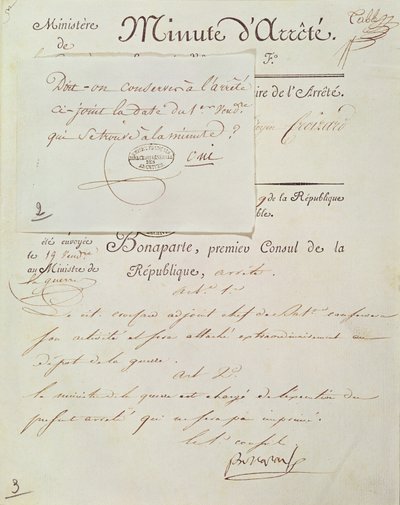 Ministère
de
Minute d'Arrêté.
F.°
Doit-on conserver à l'arrêté
ci-joint la date du 1.er Vend.re
qui se trouve à la minute ?
oui
2
ire de l'Arrêté.
oyen Croizard
9 de la République
ble.
été envoyée
le 19 Vend.re
au Ministre de
la guerre
Bonaparte, premier Consul de la
République, arrête
art. 1er
adjoint chef de conservera
son activité et sera attaché extraordinairement au
dépôt de la guerre.
art 2.
le ministre de la guerre est chargé de l'exécution du
présent arrêté qui ne sera pas imprimé.
le 1er consul
Bonaparte
3